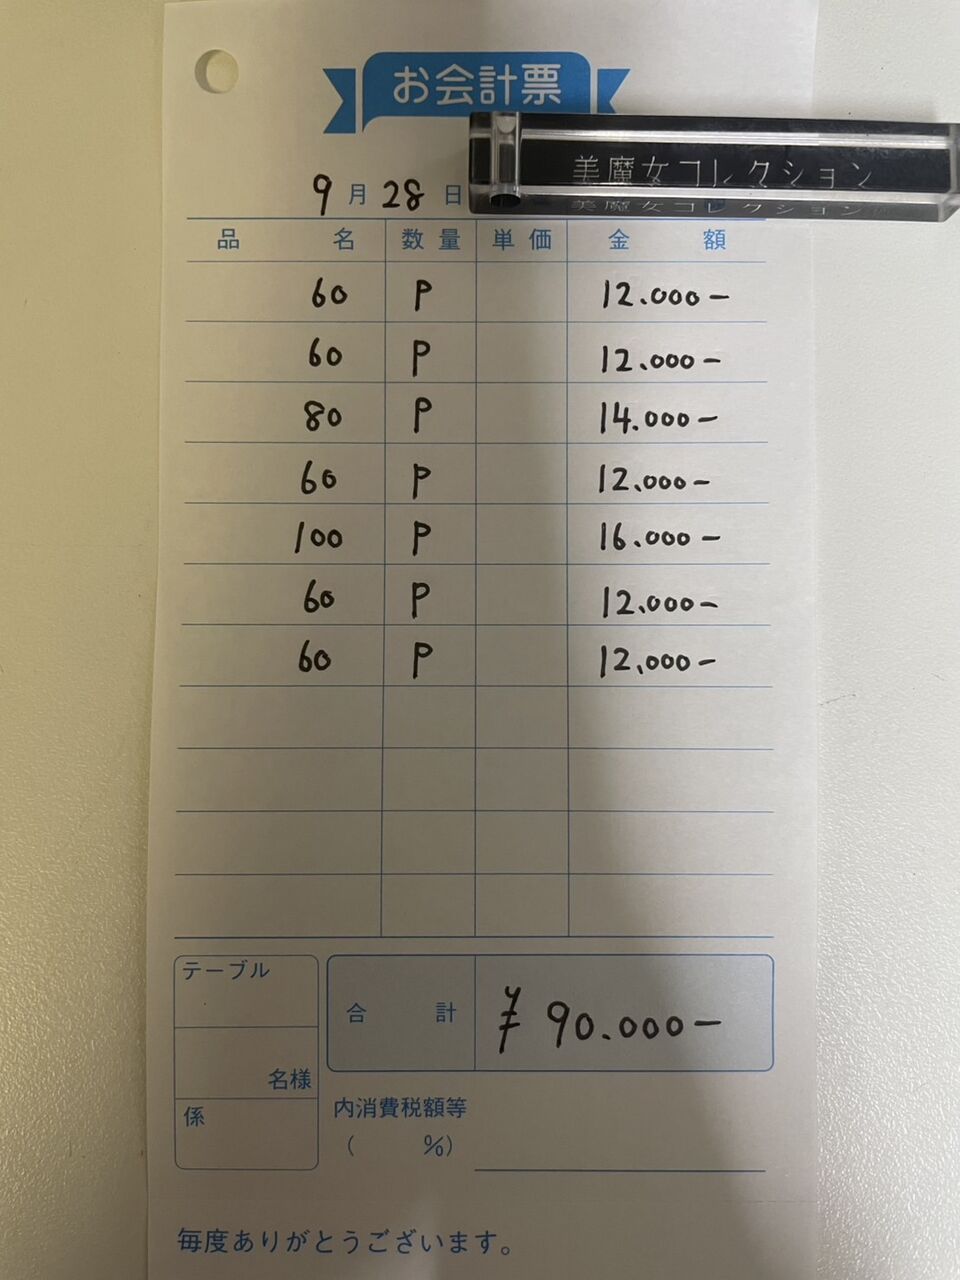 お会計票
美魔女コレクション
美魔女コレクション
9月28日
品名 数量 単価 金額
60 P 12.000-
60 P 12.000-
80 P 14.000-
60 P 12.000-
100 P 16.000-
60 P 12.000-
60 P 12.000-
テーブル
名様
係
合計 ¥90.000-
内消費税額等
( %)
毎度ありがとうございます。